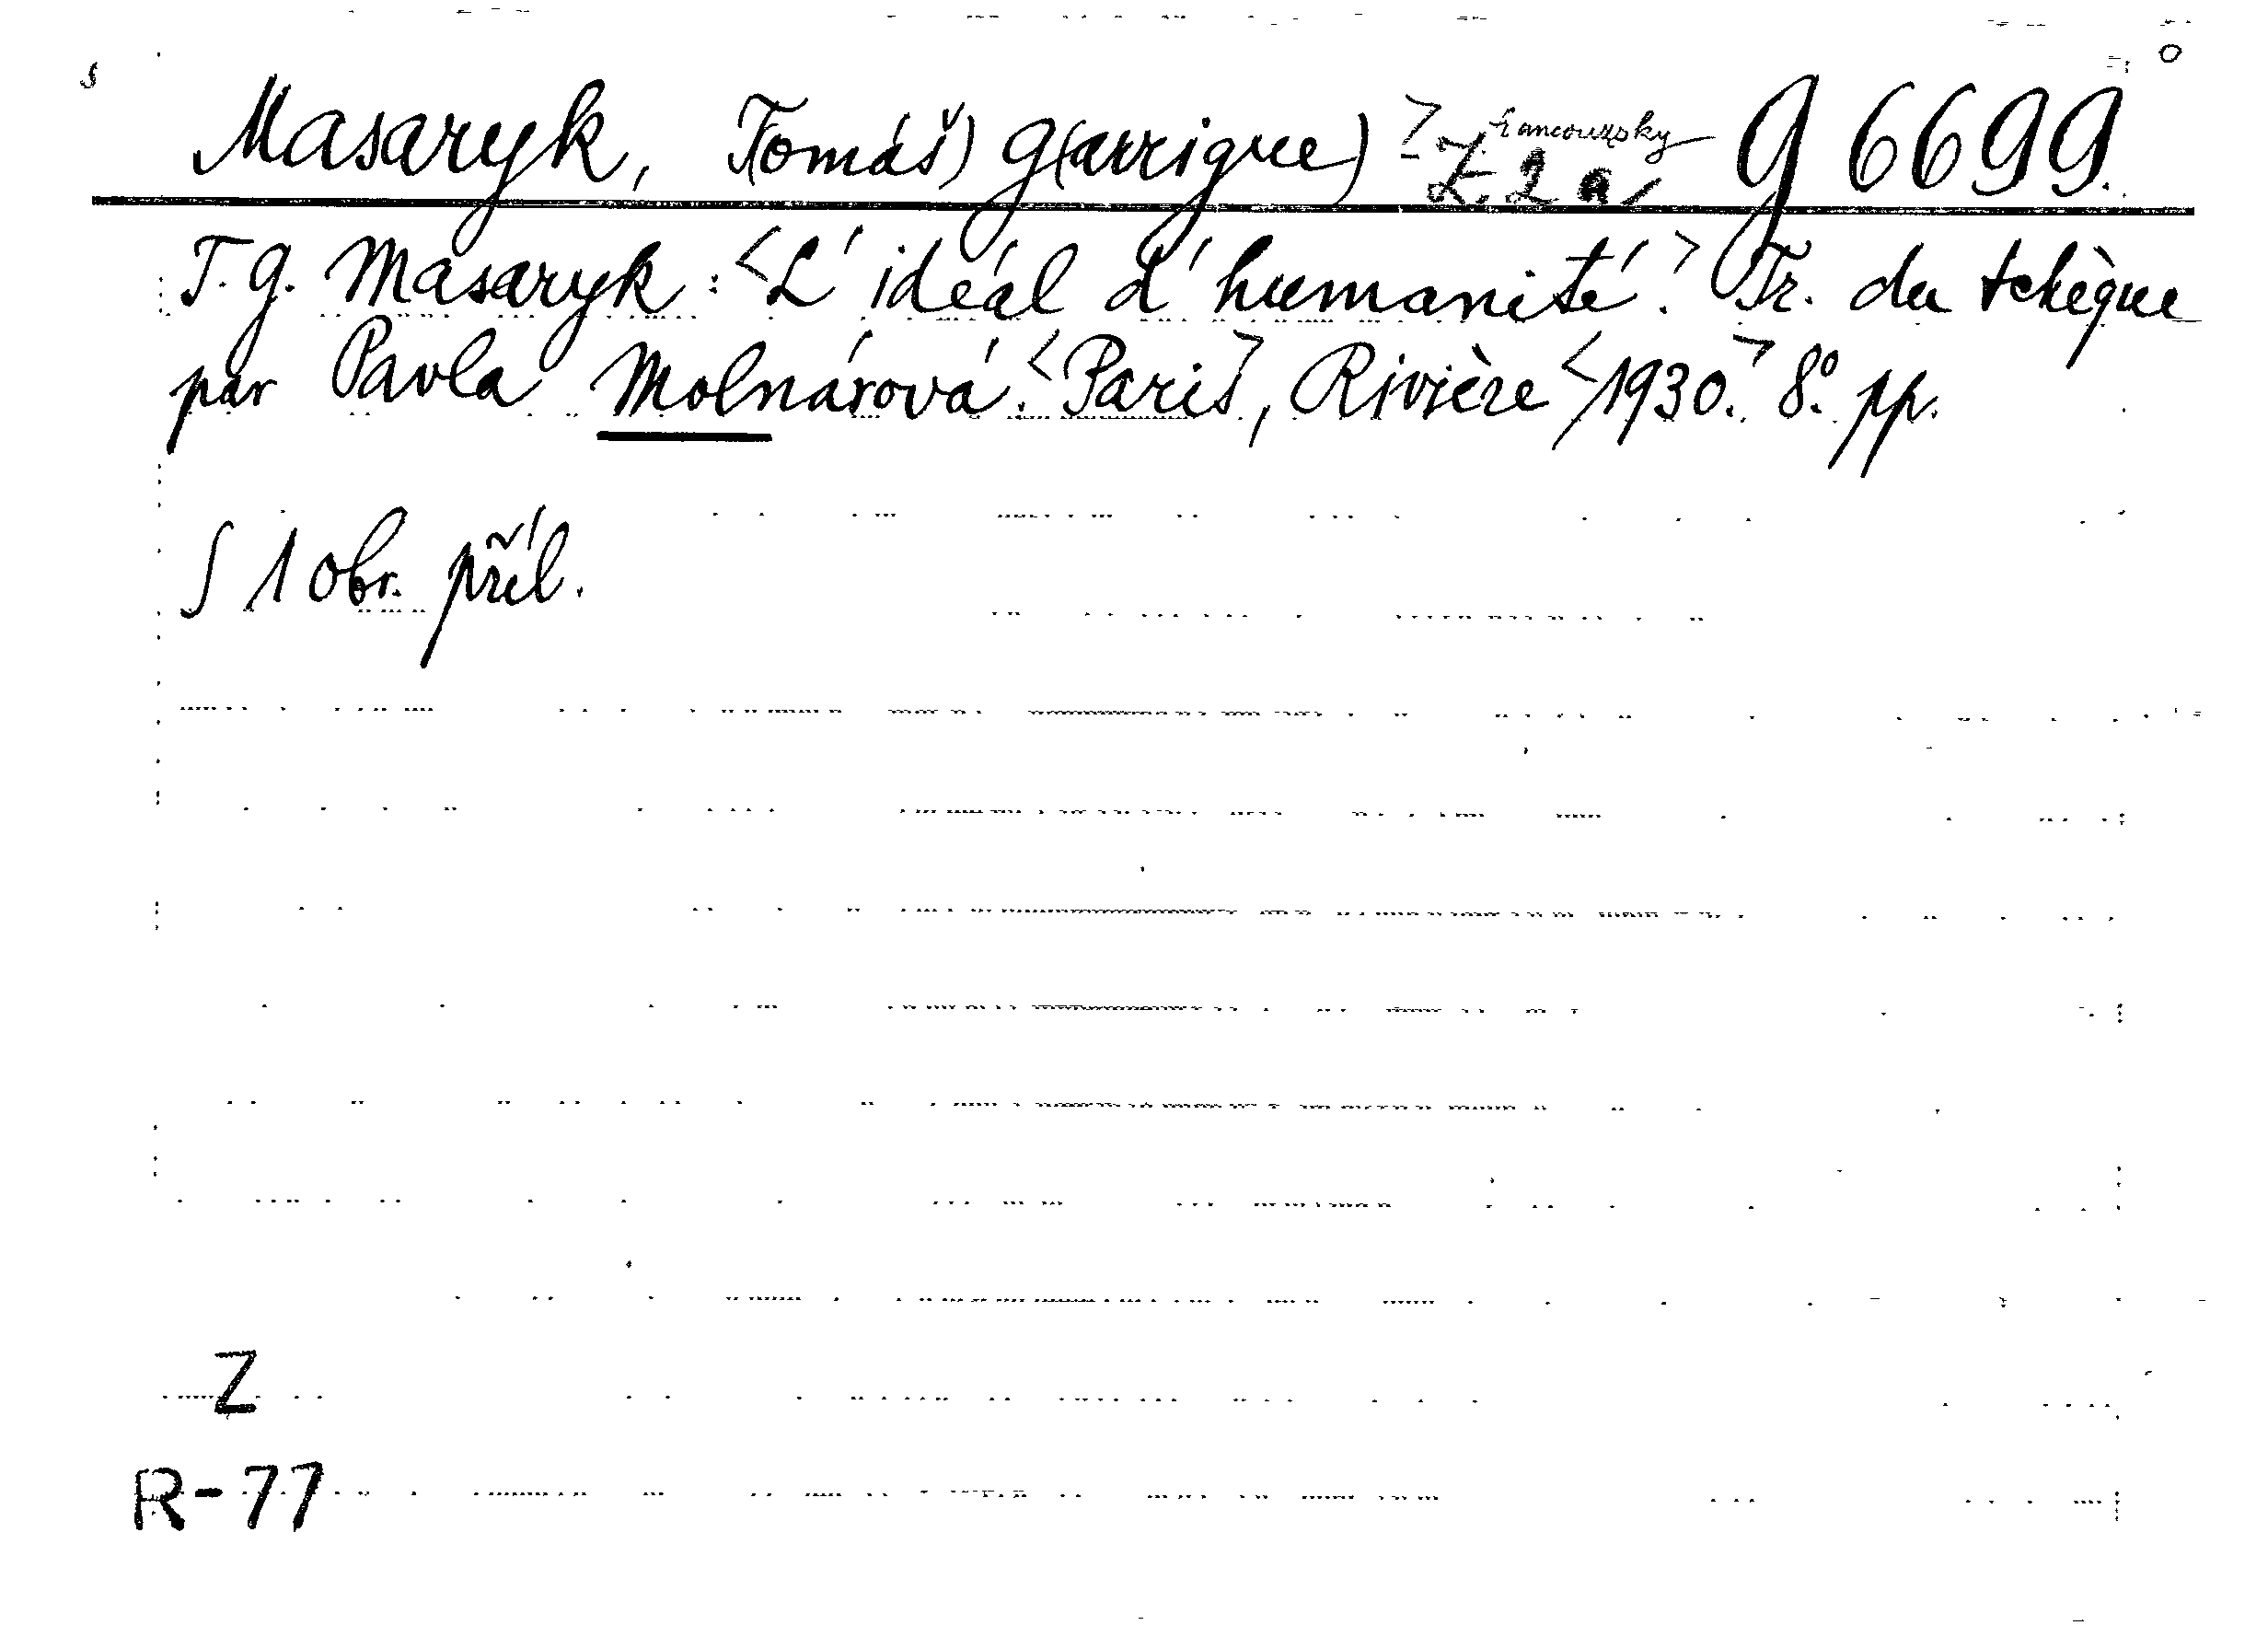 Masaryk, T(omáš) G(arrigue) francouzsky g 6699.
Z 2 a
T. G. Masaryk: <L' idéal d' humanité.> Tr. du tchèque
par Pavla Molnárová. <Paris>, Rivière <1930.> 8° pp.
S 1 obr. příl.
Z
R-77